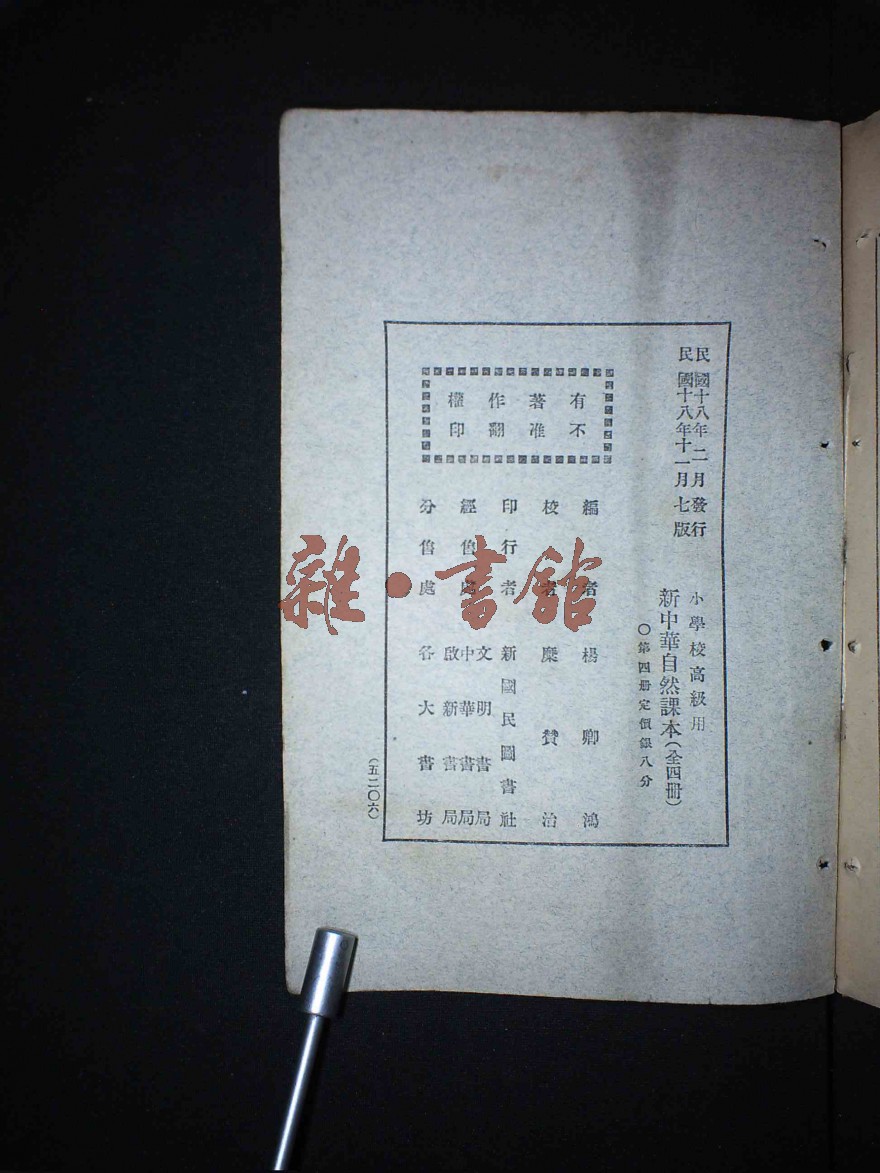 民國十八年二月發行
民國十八年十一月七版
小學校高級用
新中華自然課本(全四冊)
〇第四册定價銀八分
有著作權
不准翻印
編者 楊卿鴻
校者 糜贊治
印行者 新國民圖書社
經售處 文明書局
中華書局
啟新書局
分售處 各大書坊
(五二〇六)
雜·書館